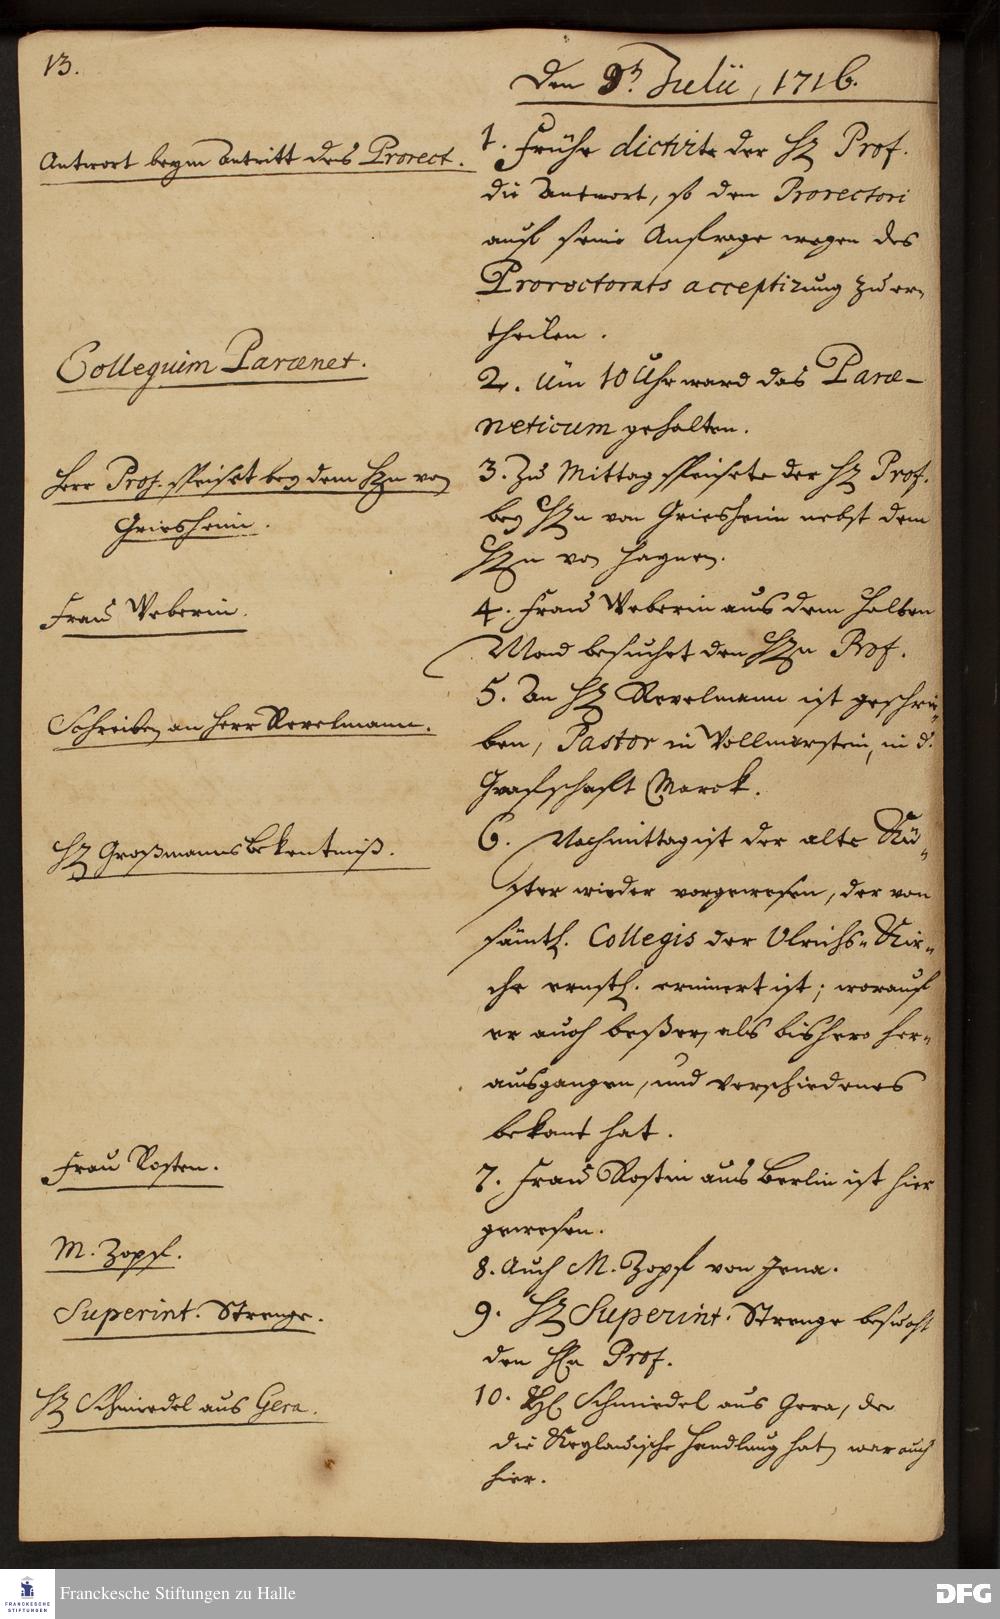 13.
Den 9t. Julii, 1716.
Antwort beym Antritt des Prorect.
1. Frühe dictirte der H. Prof.
die Antwort, so dem Prorectori
auf seine Anfrage wegen des
Prorectorats acceptirung zu er„
theilen.
Collegium Parænet.
2. Um 10 Uhr ward das Paræ-
neticum gehalten.
Herr Prof. speiset bey dem Hn von
Griesheim.
3. Zu Mittag speisete der H. Prof.
bey Hn von Griesheim nebst dem
Hn von Hagnen.
Frau Weberin.
4. Frau Weberin aus dem halben
Mond besuchet den Hn Prof.
Schreiben an Herr Revelmann.
5. An H. Revelmann ist geschrie„
ben, Pastor in Vollmarstein, in d.
Grafschaft Marck.
H. Großmanns Bekentniß.
6. Nachmittag ist der alte Kü„
ster wieder vorgewesen, der von
sämtl. Collegis der Ulrichs-Kir„
che ernstl. erinnert ist; worauf
er auch beßer, als bishero her„
ausgangen, und verschiedenes
bekant hat.
Frau Rosten.
7. Frau Rostin aus Berlin ist hier
gewesen.
M. Zopf.
8. Auch M. Zopf von Jena.
Superint. Strenge.
9. H. Superint. Strenge besucht
den Hn Prof.
H. Schmiedel aus Gera.
10. H. Schmiedel aus Gera, der
die Handlung hat, war auch
hier.
FRANCKESCHE
STIFTUNGEN
Franckesche Stiftungen zu Halle
DFG